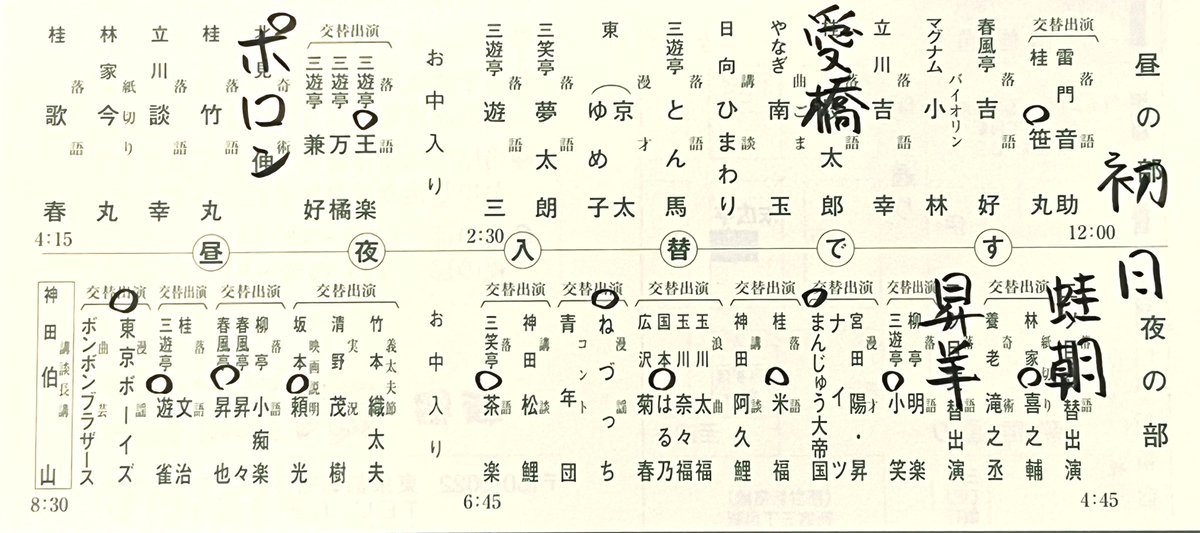 昼の部
初日
12:00
交替出演
落語
雷門音助
桂笹丸
落語
春風亭吉好
バイオリン
マグナム小林
落語
立川吉幸
愛橋
太郎
曲ごま
やなぎ南玉
講談
日向ひまわり
落語
三遊亭とん馬
漫才
東京太
ゆめ子
落語
三笑亭夢太朗
落語
三遊亭遊三
2:30
お中入り
交替出演
落語
三遊亭王楽
三遊亭万橘
三遊亭兼好
奇術
ポロン
見伸
落語
桂竹丸
落語
立川談幸
紙切り
林家今丸
落語
桂歌春
4:15
昼夜入替です
夜の部
4:45
蛙朝
替出演
交替出演
紙切り
林家喜之輔
奇術
養老瀧之丞
昇羊
替出演
交替出演
落語
柳亭明楽
三遊亭小笑
交替出演
漫才
宮田陽・昇
ナイツ
まんじゅう大帝国
落語
桂米福
講談
神田阿久鯉
交替出演
浪曲
玉川太福
玉川奈々福
国本はる乃
広沢菊春
交替出演
漫謡
ねづっち
コント
青年団
交替出演
講談
神田松鯉
落語
三笑亭茶楽
6:45
お中入り
交替出演
義太夫節
竹本織太夫
実況
清野茂樹
映画説明
坂本頼光
交替出演
落語
柳亭小痴楽
春風亭昇々
春風亭昇也
交替出演
落語
桂文治
三遊亭遊雀
交替出演
漫謡
東京ボーイズ
曲芸
ボンボンブラザース
講談長講
神田伯山
8:30